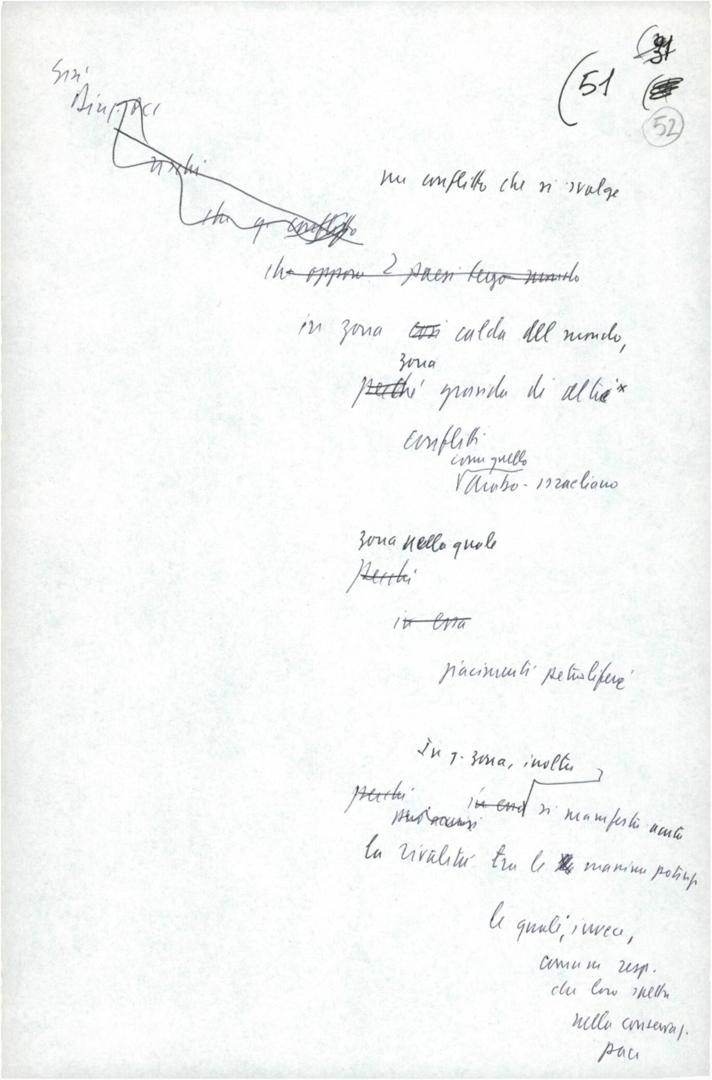 (51
52
un conflitto che si svolge
che oppone 2 paesi terzo mondo
in zona così calda del mondo,
zona
perché gravida di altri
conflitti
come quello
arabo-israeliano
zona nella quale
perché
in essa
giacimenti petroliferi
In q. zona, inoltre
perché in essa si manifesta
la rivalità tra le massime potenze
le quali, invece,
comune resp.
che loro spetta
nella conservaz.
pace